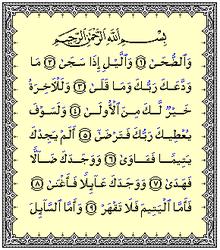 بِسْمِ اللَّهِ الرَّحْمَٰنِ الرَّحِيمِ
وَالضُّحَىٰ ١ وَاللَّيْلِ إِذَا سَجَىٰ ٢ مَا
وَدَّعَكَ رَبُّكَ وَمَا قَلَىٰ ٣ وَلَلْآخِرَةُ
خَيْرٌ لَّكَ مِنَ الْأُولَىٰ ٤ وَلَسَوْفَ
يُعْطِيكَ رَبُّكَ فَتَرْضَىٰ ٥ أَلَمْ يَجِدْكَ
يَتِيمًا فَـَٔاوَىٰ ٦ وَوَجَدَكَ ضَالًّا
فَهَدَىٰ ٧ وَوَجَدَكَ عَائِلًا فَأَغْنَىٰ ٨
فَأَمَّا الْيَتِيمَ فَلَا تَقْهَرْ ٩ وَأَمَّا السَّائِلَ